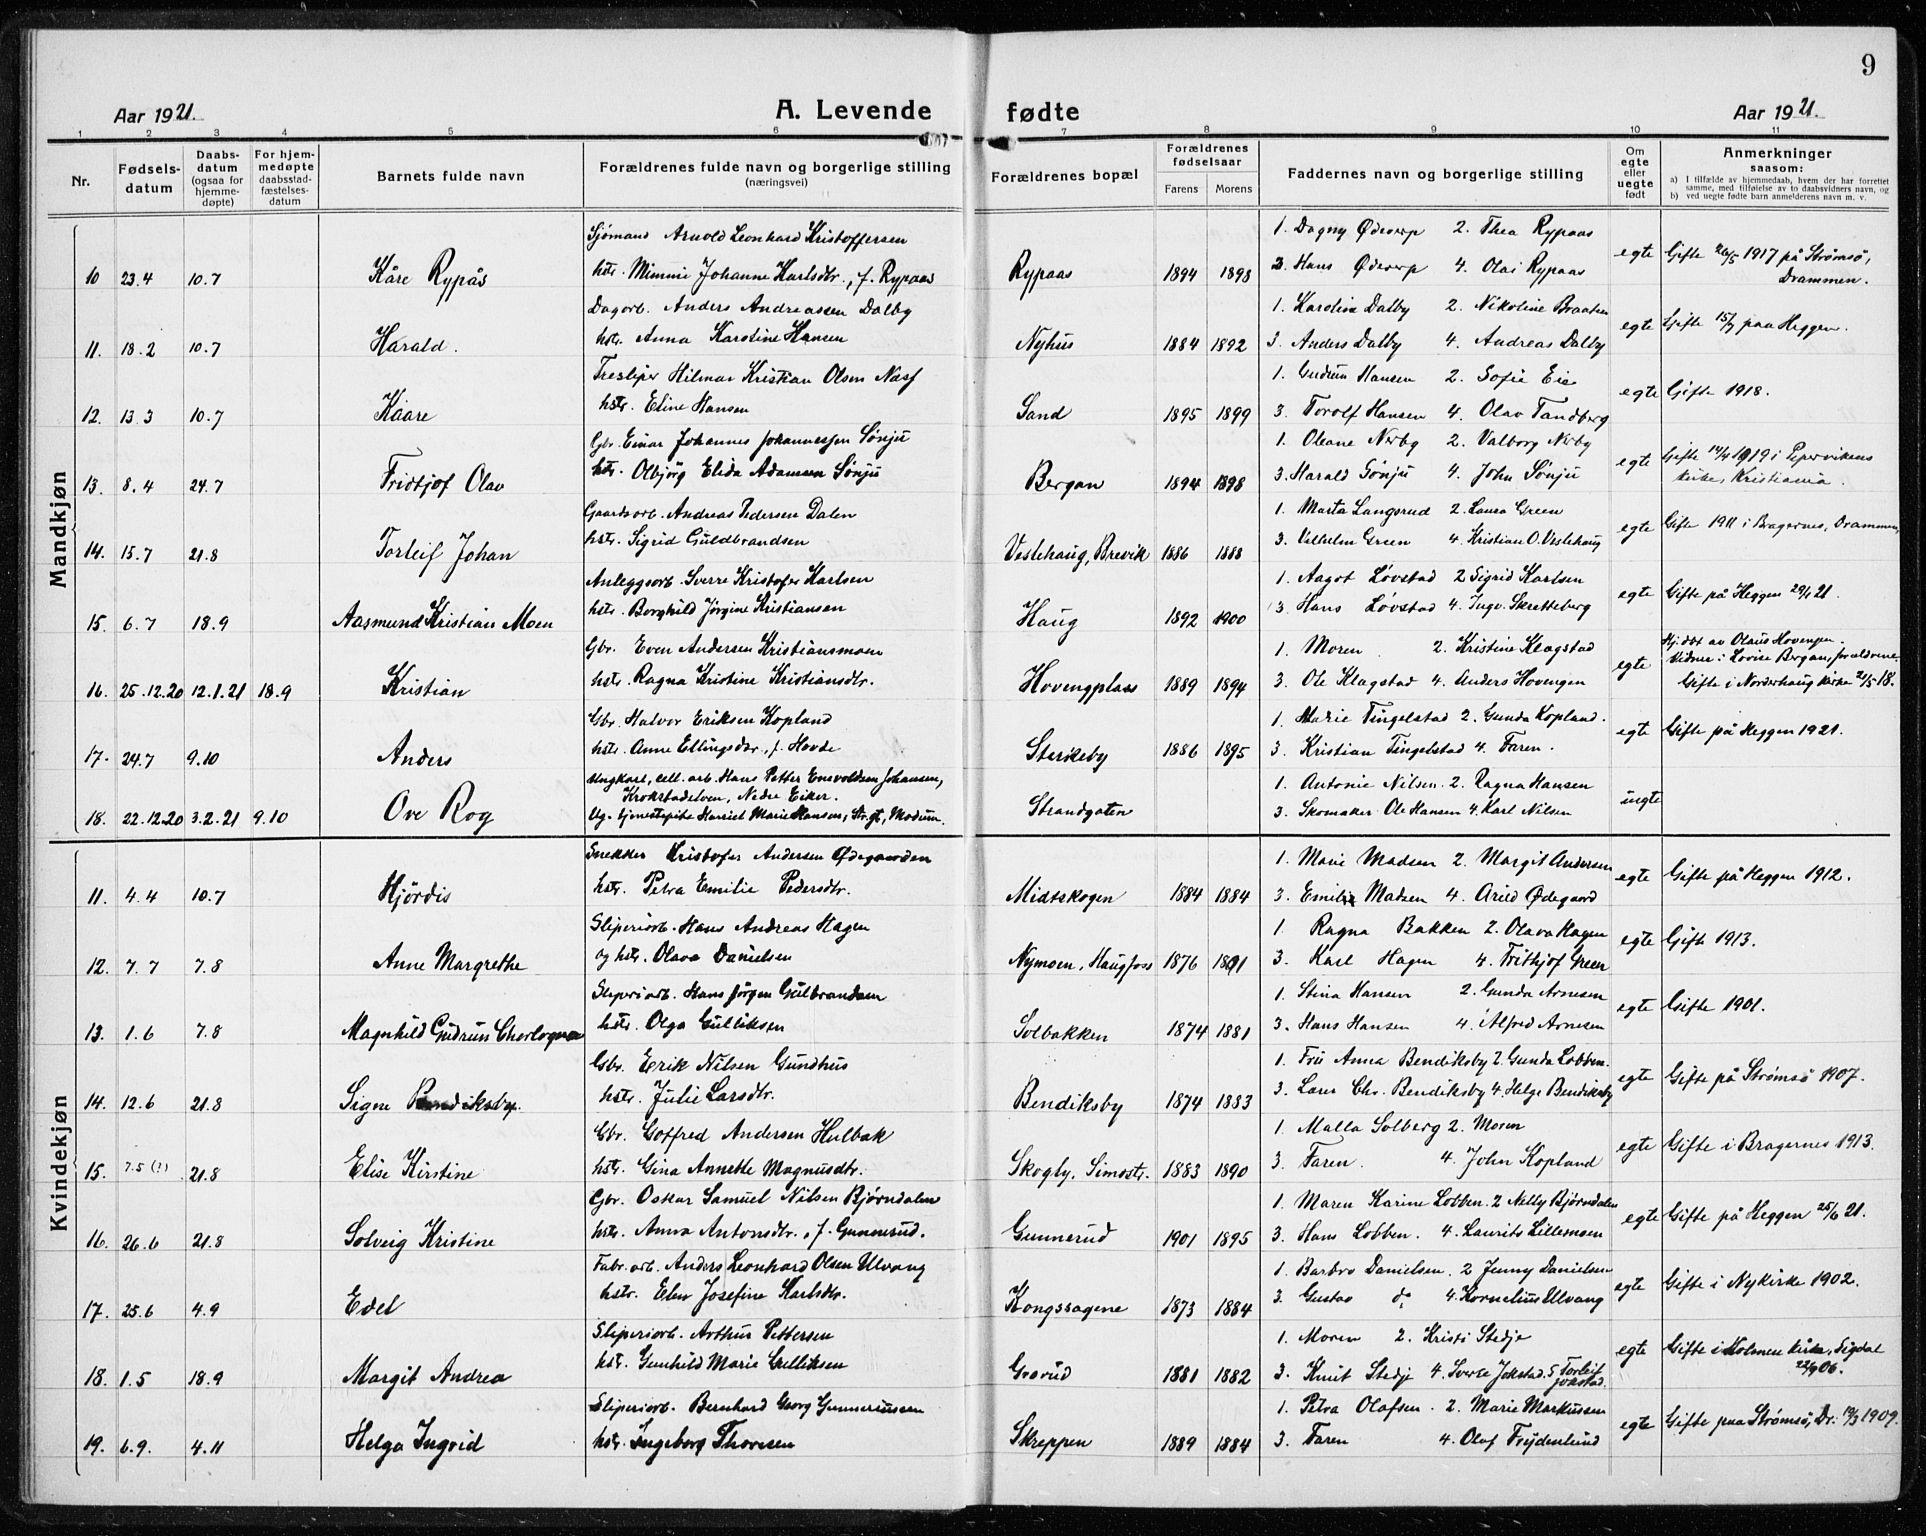 9
Aar 1921.
A. Levende fødte
Aar 1921.
1 2 3 4 5 6 7 8 9 10 11
Nr.
Fødsels-
datum
Daabs-
datum
(ogsaa for
hjemme-
døpte)
For hjem-
medøpte
daabsstad-
fæstelses-
datum
Barnets fulde navn
Forældrenes fulde navn og borgerlige stilling
(næringsvei)
Forældrenes bopæl
Forældrenes
fødselsaar
Farens Morens
Faddernes navn og borgerlige stilling
Om
egte
eller
uegte
født
Anmerkninger
saasom:
a) I tilfælde av hjemmedaab, hvem der har forrettet
samme, med tilføielse av to daabsvidners navn, og
b) ved uegte fødte barn anmelderens navn m. v.
Mandkjøn
Sjømand Arnold Leonhard Kristoffersen 1. Dagny Ødeverp 2. Thea Rypaas
10 23.4 10.7 Kåre Rypås hstr. Mimmi Johanne Karlsdtr., f. Rypaas Rypaas 1894 1898 3. Hans Ødeverp 4. Olai Rypaas egte Gifte 26/5 1917 på Strømsø,
Drammen.
Dagarb. Anders Andreassen Dalby 1. Karoline Dalby 2. Nikoline Braaten
11. 18.2 10.7 Harald. hstr. Anna Karstine Hansen Nyhus 1884 1892 3. Anders Dalby 4. Andreas Dalby egte Gifte 15/7 paa Heggen.
Tresliper Hilmar Kristian Olsen Næss 1. Gudrun Hansen 2. Sofie Eie
12. 13.3 10.7 Kaare hstr. Eline Hansen Sand 1895 1899 3. Torolf Hansen 4. Olav Tandberg egte Gifte 1918.
Gbr. Einar Johannes Johannessen Sønju 1. Oleane Nerby 2. Valborg Nerby
13. 8.4 24.7 Fridtjof Olav hstr. Olbjørg Elida Adamsen Sønju Bergan 1894 1898 3. Harald Sønju 4. John Sønju egte Gifte 14/4 1919 i Pipervikens
kirke, Kristiania.
Gaardsarb. Andreas Pedersen Dalen 1. Marta Langsrud 2. Laura Green
14. 15.7 21.8 Torleif Johan hstr. Sigrid Guldbrandsen Veslehaug, Brevik 1886 1888 3. Vilhelm Green 4. Kristian O. Veslehaug egte Gifte 1911 i Bragernes, Drammen.
Anleggsarb. Sverre Kristofer Karlsen 1. Aagot Løvstad 2 Sigrid Karlsen
15. 6.7 18.9 Aasmund Kristian Moen hstr. Borghild Jørgine Kristiansen Haug 1892 1900 3. Hans Løvstad 4. Ingv. Skretteberg egte Gifte på Heggen 29/1 21.
Gbr. Even Andersen Kristiansmoen 1. Moren. 2. Kristine Klagstad Hj.døt av Olaus Hovengen.
16. 25.12.20 12.1.21 18.9 Kristian hstr. Ragna Kristine Kristiansdtr. Hovengplass 1889 1894 3. Ole Klagstad 4. Anders Hovengen egte Vidner: Lovise Bergan, forældrene.
Gifte i Norderhaug kirke 21/5 18.
Gbr. Halvor Eriksen Kopland 1. Marie Tingelstad 2. Gunda Kopland.
17. 24.7 9.10 Anders hstr. Anne Ellingsdtr., f. Hovde Sterikeby 1886 1895 3. Kristian Tingelstad 4. Faren. egte Gifte på Heggen 1921.
Ungkarl, cell. arb. Hans Petter Enevoldsen Johansen, 1. Antonie Nilsen. 2. Ragna Hansen
Krokstadelven, Nedre Eiker.
18. 22.12.20 3.2.21 9.10 Ove Rog Ug. tjenestepike Harriet Marie Hansen, Str.gt., Modum. Strandgaten 3. Skomaker Ole Hansen 4. Karl Nilsen uegte
Kvindekjøn
Snekker Kristofer Andersen Ødegaarden 1. Marie Madsen 2. Margit Andersen
11. 4.4 10.7 Hjørdis hstr. Petra Emilie Pedersdtr. Midtskogen 1884 1884 3. Emilie Madsen 4. Arud Ødegaard egte Gifte på Heggen 1912.
Sliperiarb. Hans Andreas Hagen 1. Ragna Bakken 2. Olava Hagen
12. 7.7 7.8 Anne Margrethe og hstr. Olava Danielsen Nymoen, Haugfoss 1876 1891 3. Karl Hagen 4. Frithjof Green egte Gift 1913.
Sliperiarb. Hans Jørgen Gulbrandsen 1. Stina Hansen 2. Gunda Arnesen
13. 1.6 7.8 Magnhild Gudrun hstr. Olga Gulliksen Solbakken 1874 1881 3. Hans Hansen 4. Alfred Arnesen egte Gifte 1901.
Gbr. Eerik Nilsen Gundhus 1. Fru Anna Bendiksby 2 Gunda Lobben.
14. 12.6 21.8 Signe Bendiksby. hstr. Julie Larsdtr. Bendiksby 1874 1883 3. Lars Chr. Bendiksby 4. Helge Bendiksby egte Gifte på Strømsø 1907.
Gbr. Goffred Andersen Hulbak 1. Malla Solberg 2. Moren
15. 7.5 (?) 21.8 Elise Kirstine hstr. Gina Annette Magnusdtr. Skogly, Simostr. 1883 1890 3. Faren. 4. John Kopland egte Gifte i Bragernes 1913.
Gbr. Oskar Samuel Nilsen Bjørndalen 1. Maren Karine Lobben. 2 Nelly Bjørndalen
16. 26.6 21.8 Solveig Kristine hstr. Anna Antonsdtr., f. Gunnerud. Gunnerud 1901 1895 3. Hans Lobben. 4. Laurits Lillemoen egte Gifte på Heggen 25/6 21.
Fabr. arb. Anders Leonhard Olsen Ulvang 1. Barbro Danielsen. 2 Jenny Danielsen
17. 25.6 4.9 Edel hstr. Elen Josefine Karlsdtr. Kongssagene 1873 1884 3. Gustav do 4. Kornelius Ulvang egte Gifte i Nykirke 1902.
Sliperiarb. Arthur Pettersen 1. Moren 2. Kristi Stedje
18. 1.5 18.9 Margit Andrea hstr. Gunhild Marie Gulliksen Gravud 1881 1882 3. Knut Stedje 4. Sverre Jokstad. 5 Torleif Jokstad. egte Gifte i Holmen kirke, Sigdal
22/9 06.
Sliperiarb. Bernhard Georg Gunneriussen 1. Petra Olafsen. 2. Marie Markussen
19. 6.9. 4.11 Helga Ingrid hstr. Ingeborg Thoresen Skreppen 1889 1884 3. Faren 4. Olaf Frydenlund egte Gifte paa Strømsø, Dr. 19/3 1909.